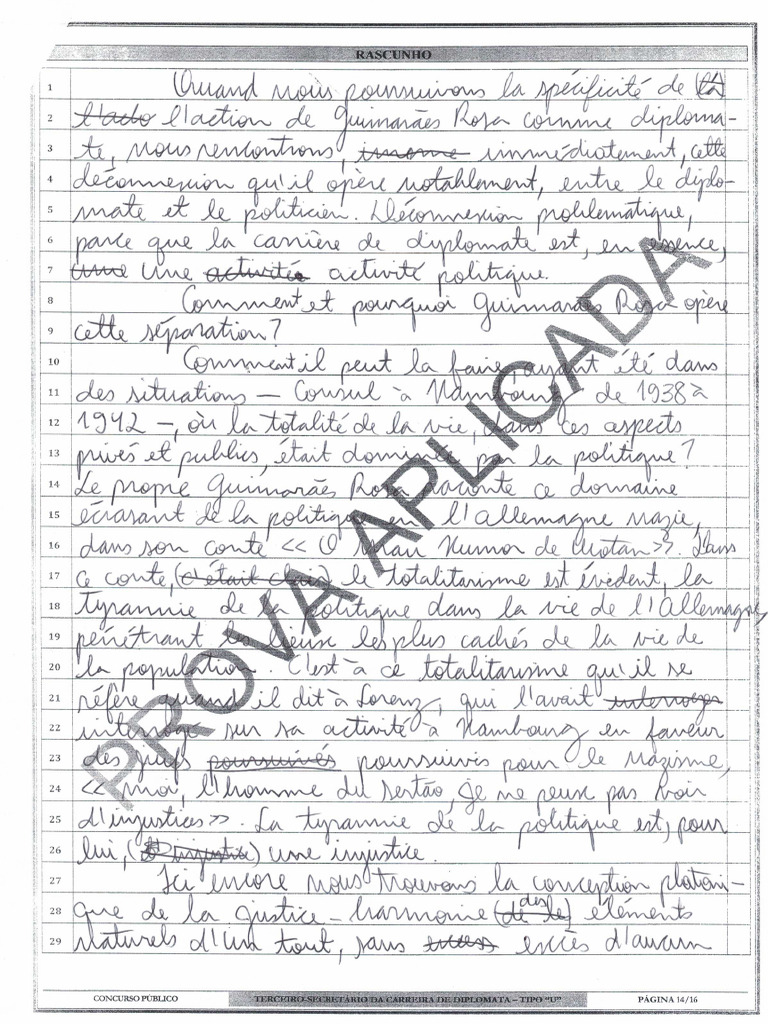 RASCUNHO
1 Quand nous poursuivons la spécificité de (la
2 l'acto l'action de Guimarães Rosa comme diploma-
3 te, nous rencontrons, immediatement, cette
4 déconnexion qu'il opère notablement, entre le diplo-
5 mate et le politicien. Déconnexion problematique,
6 parce que la carrière de diplomate est, en essence,
7 une une activitée activité politique.
8 Comment et pourquoi Guimarães Rosa opère
9 cette séparation?
10 Comment il peut la faire, ayant été dans
11 des situations — Consul à Hambourg de 1938 à
12 1942 —, où la totalité de la vie, dans ces aspects
13 privés et publics, était dominée par la politique?
14 Le propre Guimarães Rosa raconte ce domaine
15 écrasant de la politique en l'Allemagne nazie,
16 dans son conte << O Mau Humor de Wotan>>. Dans
17 ce conte, (c'était clair) le totalitarisme est évident, la
18 tyrannie de la politique dans la vie de l'Allemagne,
19 pénétrant les lieux les plus cachés de la vie de
20 la population. C'est à ce totalitarisme qu'il se
21 réfère quand il dit à Lorenz, qui l'avait interroger
22 interrogé sur sa activité à Hambourg en faveur
23 des juifs poursuivés poursuivis pour le Nazisme,
24 << moi, l'homme du sertão, je ne peux pas voir
25 d'injustices>>. La tyrannie de la politique est, pour
26 lui, ( injustice) une injustice.
27 Ici encore nous trouvons la conception platoni-
28 que de la justice - harmonie (de le) des éléments
29 naturels d'un tout, sans excess excès d'aucun
PROVA APLICADA
CONCURSO PÚBLICO TERCEIRO-SECRETÁRIO DA CARREIRA DE DIPLOMATA – TIPO "U" PÁGINA 14/16